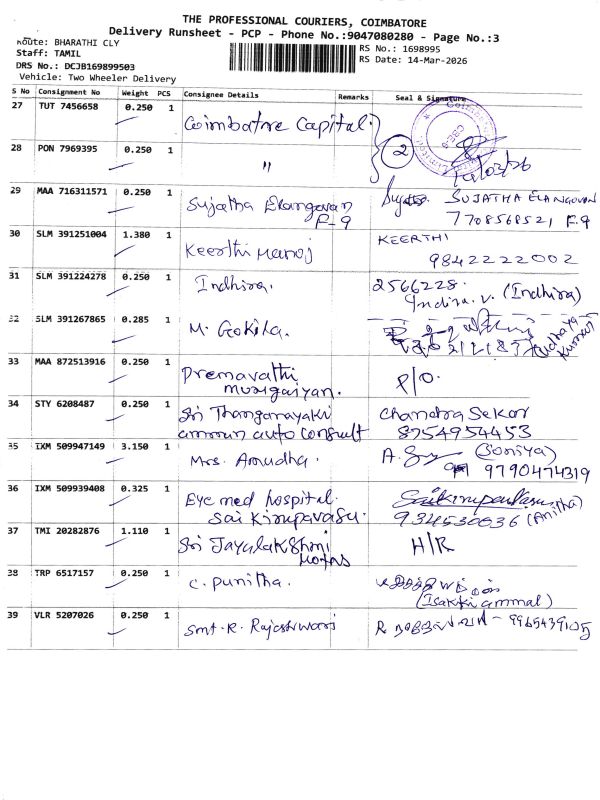 THE PROFESSIONAL COURIERS, COIMBATORE
Delivery Runsheet - PCP - Phone No.:9047080280 - Page No.:3
Route: BHARATHI CLY
Staff: TAMIL
DRS No.: DCJB169899503
Vehicle: Two Wheeler Delivery
RS No.: 1698995
RS Date: 14-Mar-2026
S No Consignment No Weight PCS Consignee Details Remarks Seal & Signature
27 TUT 7456658 0.250 1 Coimbatore Capital. 2
28 PON 7969395 0.250 1 "
29 MAA 716311571 0.250 1 Sujatha Elangovan SUJATHA ELANGOVAN
F-9 7708568521 F.9
30 SLM 391251004 1.380 1 Keerthi Manoj KEERTHI
9842222002
31 SLM 391224278 0.250 1 Indhira. 2566228.
Indira. V. (Indhira)
32 SLM 391267865 0.285 1 M. Gokila. Udhaya
Kumar
33 MAA 872513916 0.250 1 Premavathi
murgaiyan. P/O.
34 STY 6208487 0.250 1 Sri Thanganayaki Chandra Sekar
amman auto consult 8754954453
35 IXM 509947149 3.150 1 Mrs. Amudha. (Soniya)
9790474319
36 IXM 509939408 0.325 1 Eye med hospital.
Sai Kirupavasu. 934530036 (Anitha)
37 TMI 20282876 1.110 1 Sri Jayalakshmi H/R
Motors
38 TRP 6517157 0.250 1 C. Punitha.
(Isakki ammal)
39 VLR 5207026 0.250 1 Smt. R. Rajeshwari 9965439105